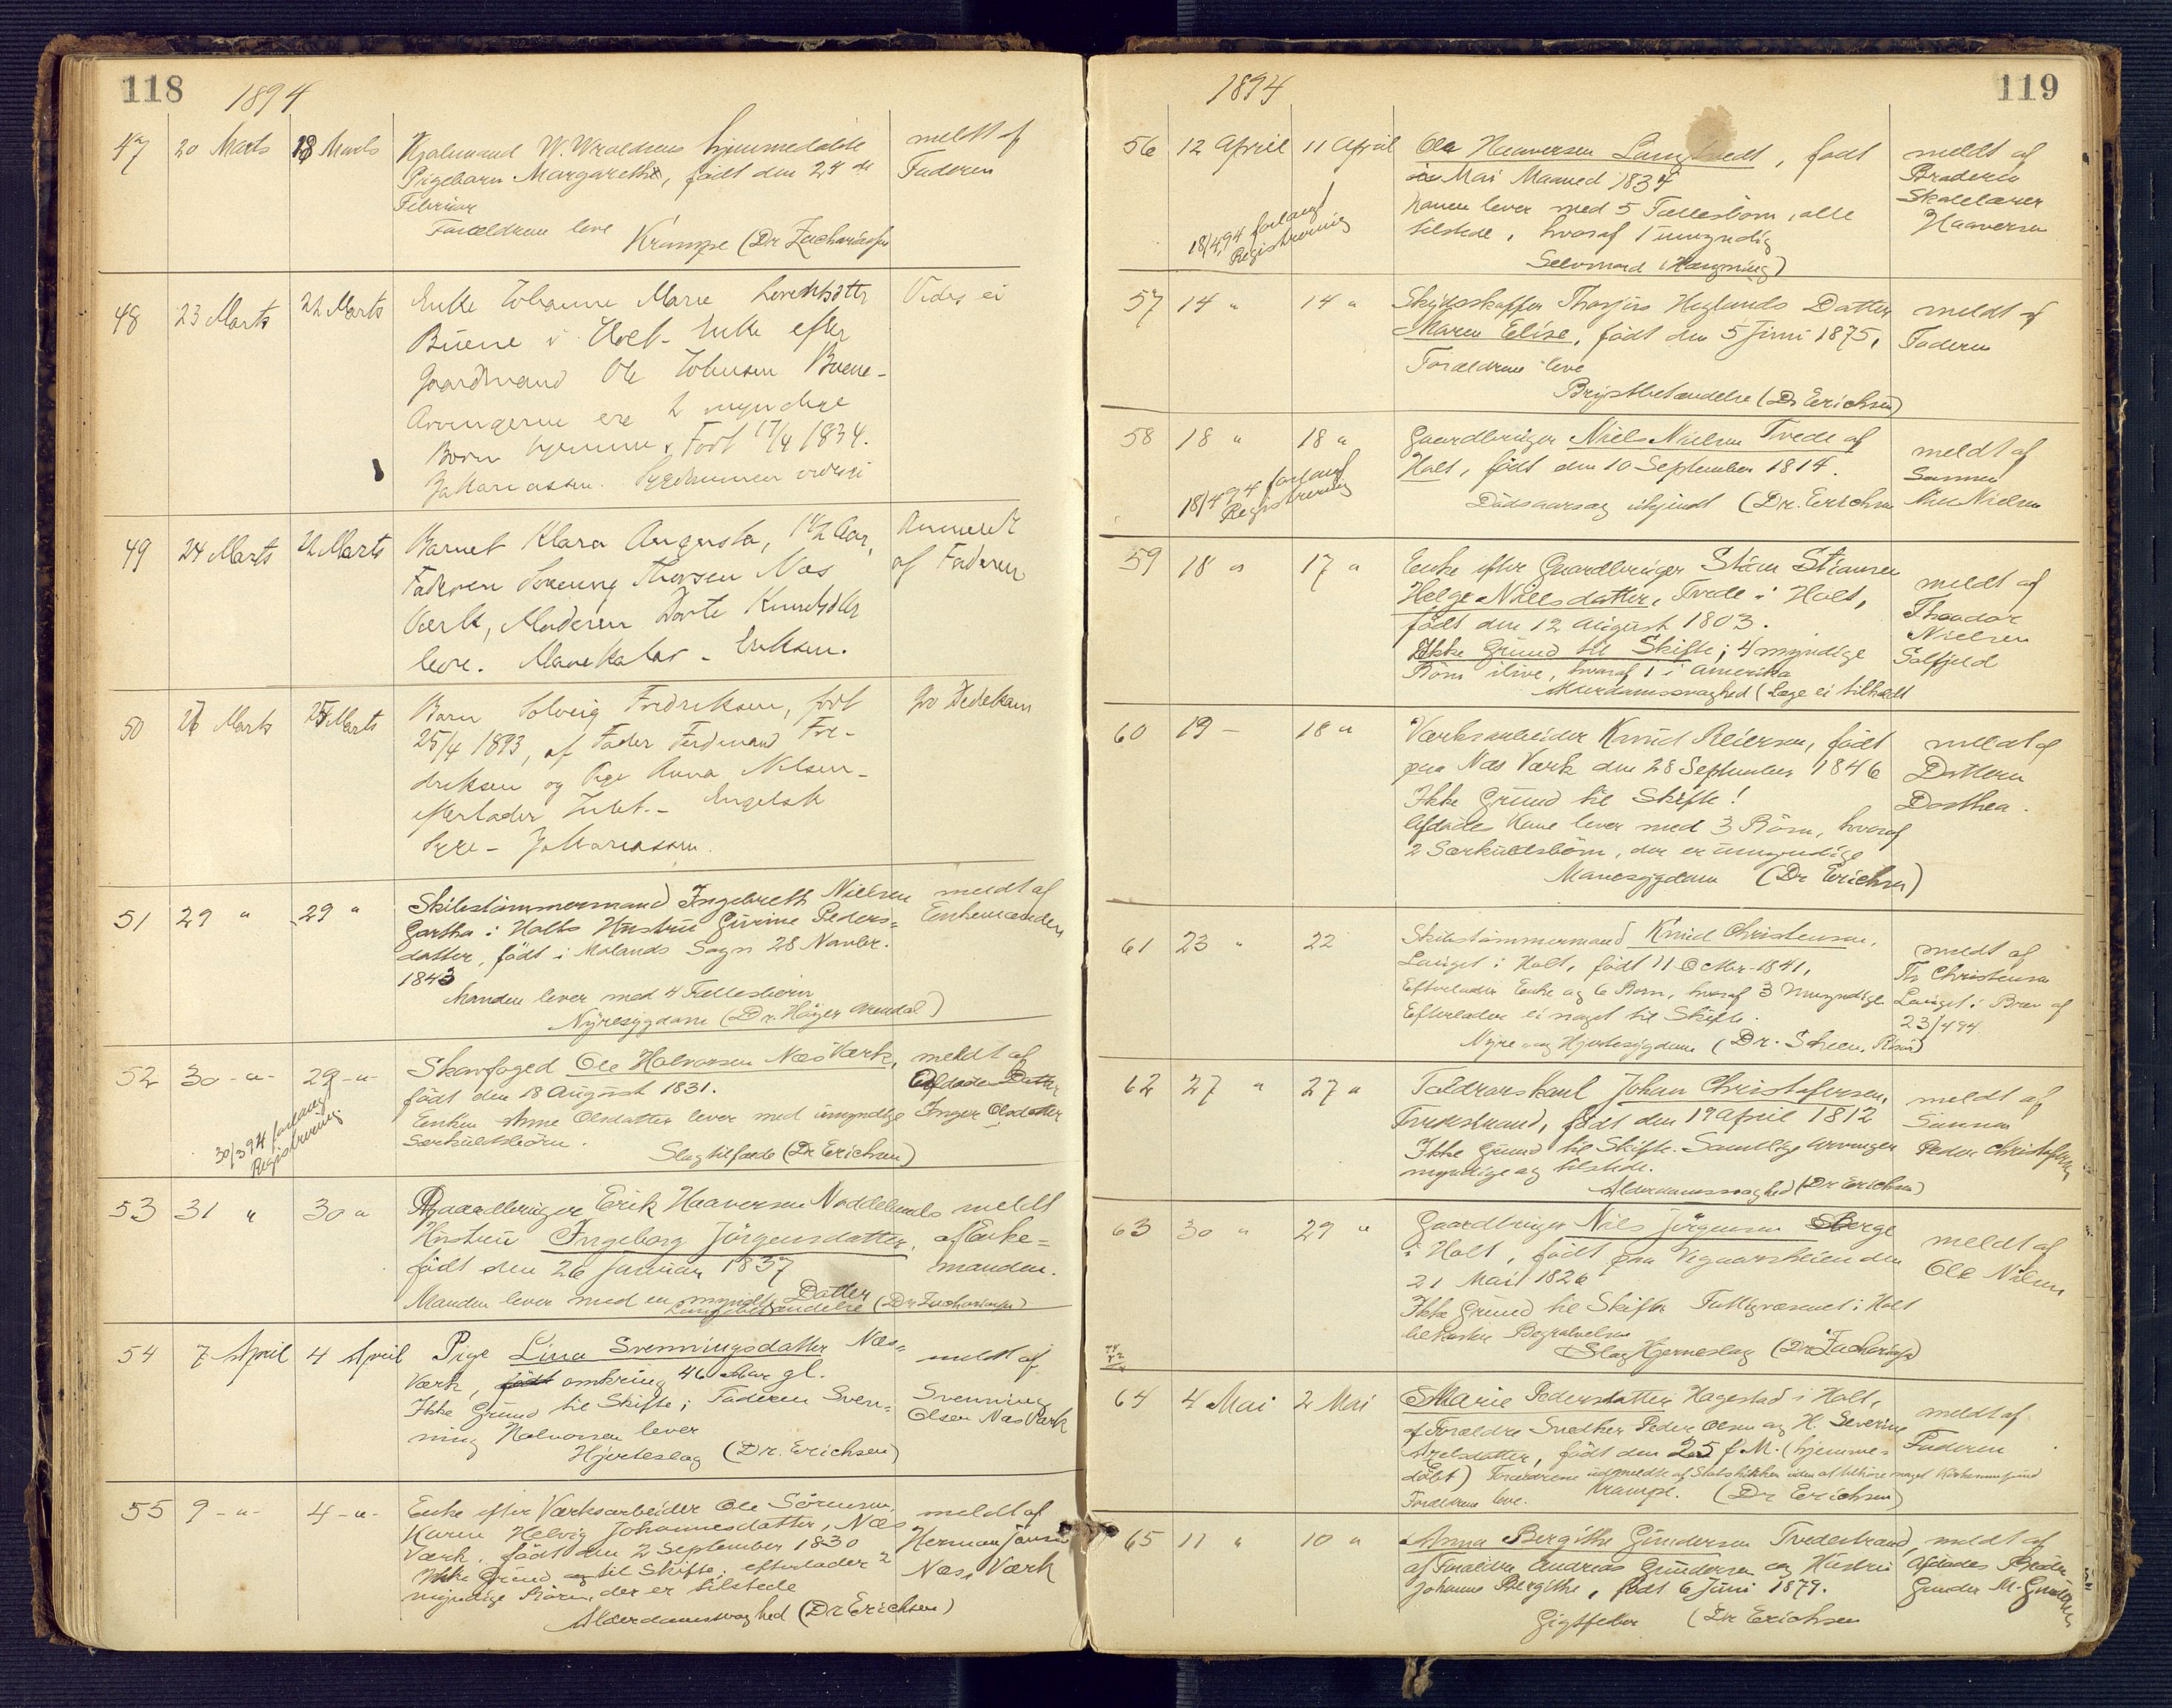 118 1894
47 20 Marts 18 Marts W. hjemmedøbte meldt af
Pigebarn Margarethe, födt den 24 de Faderen
Februar
Forældrene leve Krampe (Dr
48 23 Marts 22 Marts Enke Johanne Marie Vides ei
i Holt. Enke efter
Gaardmand Ole Johnsen
Arvingerne ere 2 myndige
Born hjemme. Fodt 17/4 1834.
49 24 Marts 22 Marts Barnet Klara Augusta, 1 1/2 Aar, Anmeldt
Faderen Thorsen Næs af Faderen
Værk, Moderen Dorte
leve.
50 26 Marts Marts Barn Solveig Fredriksen, født
25/4 1893, af Fader Ferdinand Fre-
driksen og Pige Anna Nilsen -
efterlader Intet. - Engelsk
Syge -
51 29 " 29 " Skibstömmermand Ingebreth Nielsen meldt af
Gartha i Holts Hustru Gurine Peders- Enkemanden
datter, födt i Molands Sogn 28 Novbr.
1843
Manden lever med 4 Fællesbörn
Nyresygdom (Dr. Höyer Arendal)
52 30 -"- 29 -"- Skovfoged Ole Halvorsen Næs Værk, meldt af
födt den 18 August 1831. Afdødes Datter
Enken Anne Olsdatter lever med umyndige Inger Olsdatter
Særkuldsbörn.
30/3 94 forlangt Registrering
Slagtilfælde (Dr Erichsen)
53 31 " 30 " Gaardbruger Erik Haaversen Noddelands meldt
Hustru Ingeborg Jörgensdatter, af Enke=
födt den 26 Januar 1837 manden.
Manden lever med en myndig Datter
Lungebetændelse (Dr
54 7 April 4 April Pige Lina Svenningsdatter Næs= meldt af
Værk, födt omkring 46 Aar gl. Svenning
Ikke Grund til Skifte; Faderen Sven- Olsen Næs Værk
ning Halvorsen lever
Hjerteslag (Dr. Erichsen)
55 9 -"- 4 -"- Enke efter Værksarbeider Ole Sörensen, meldt af
Karen Helvig Johannesdatter, Næs Herman Jansen
Værk, födt den 2 September 1830 Næs Værk
Ikke Grund til Skifte; efterlader 2
myndige Börn, der er tilstede
Alderdomssvaghed (Dr Erichsen)
1894 119
56 12 April 11 April Ole Haaversen, födt meldt af
Mai Maaned 1834 Broderen
Konen lever med 5 Fællesbörn, alle Skolelærer
tilstede, hvoraf 1 umyndig Haaversen
18/4 94 forlangt Registrering
Selvmord (Hængning)
57 14 " 14 " Thorjus Heglands Datter meldt af
Maren Elise, födt den 5 Juni 1875, Faderen
Forældrene leve
Brystbetændelse (Dr Erichsen)
58 18 " 18 " Gaardbruger Niels Nielsen Tvede af meldt af
Holt, födt den 10 September 1814. Sønnen
18/4 94 forlangt Registrering
Dödsaarsag ukjendt (Dr. Erichsen Nils Nielsen
59 18 " 17 " Enke efter Gaardbruger Stian Stiansen meldt af
Helge Nilsdatter, Tvede i Holt, Theodor
födt den 12 August 1803. Nielsen
Ikke Grund til Skifte; 4 myndige Solfjeld
Börn ilive, hvoraf 1 i Amerika
Alderdomssvaghed (Læge ei tilkaldt
60 19 - 18 " Værksarbeider Knud Reiersen, födt meldt af
paa Næs Værk den 28 September 1846 Datteren
Ikke Grund til Skifte! Dorthea.
Afdödes Kone lever med 3 Börn, hvoraf
2 Særkuldsbörn, der er umyndige
Mavesygdom (Dr Erichsen)
61 23 " 22 Skibstömmermand Knud Christensen, meldt af
Lauget i Holt, födt 11 Octbr. 1841, Th Christensen
Efterlader Enke og 6 Born, hvoraf 3 Umyndige Lauget i Brev af
Efterlader ei noget til Skifte. 23/4 94
Nyre og Hjertesygdom (Dr. Scheen, Risör)
62 27 " 27 " Toldrorskarl Johan Christofersen, meldt af
Tvedestrand, födt den 19 April 1812 Sønnen
Ikke Grund til Skifte. Samtlige Arvinger Peder Christofersen
myndige og tilstede.
Alderdomssvaghed (Dr Erichsen)
63 30 " 29 " Gaardbruger Nils Jörgensen Berge meldt af
i Holt, födt paa Vegaarsheien den Ole Nilsen
21 Mai 1826
Ikke Grund til Skifte Fattigvæsenet i Holt
bekoster Begravelsen
Hjerneslag (Dr
64 4 Mai 2 Mai Marie Pedersdatter Hagestad i Holt, meldt af
af Forældre Snedker Peder Olsen og H. Severine Faderen
Axelsdatter, födt den 25 f. M. (hjemme-
döbt) Forældrene udmeldte af Statskirken uden at tilhöre noget Kirkesamfund
Forældrene leve. Krampe. (Dr Erichsen)
65 11 " 10 " Anna Bergithe Gundersen Tvedestrand, meldt af
af Forældre Andreas Gundersen og Hustru Afdödes Broder
Johanne Bergithe, födt 6 Juni 1879. Gunder M. Gundersen
Gigtfeber (Dr Erichsen